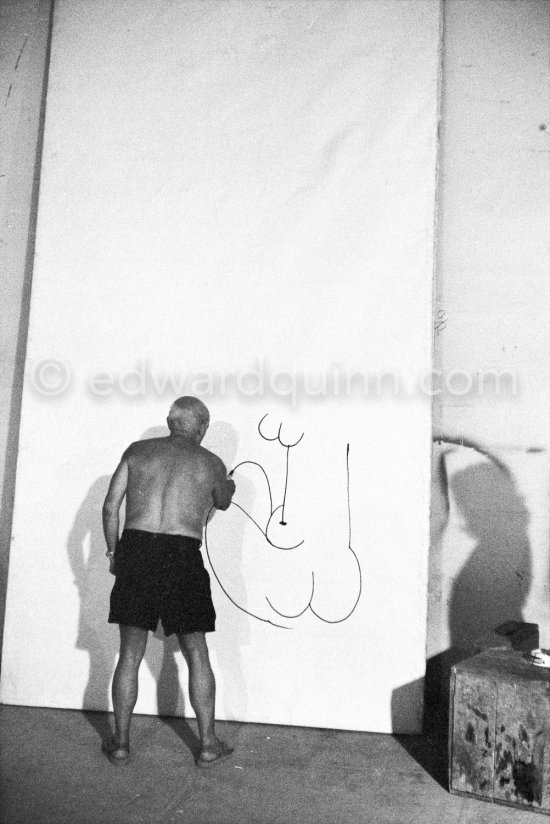 © edwardquinn.com